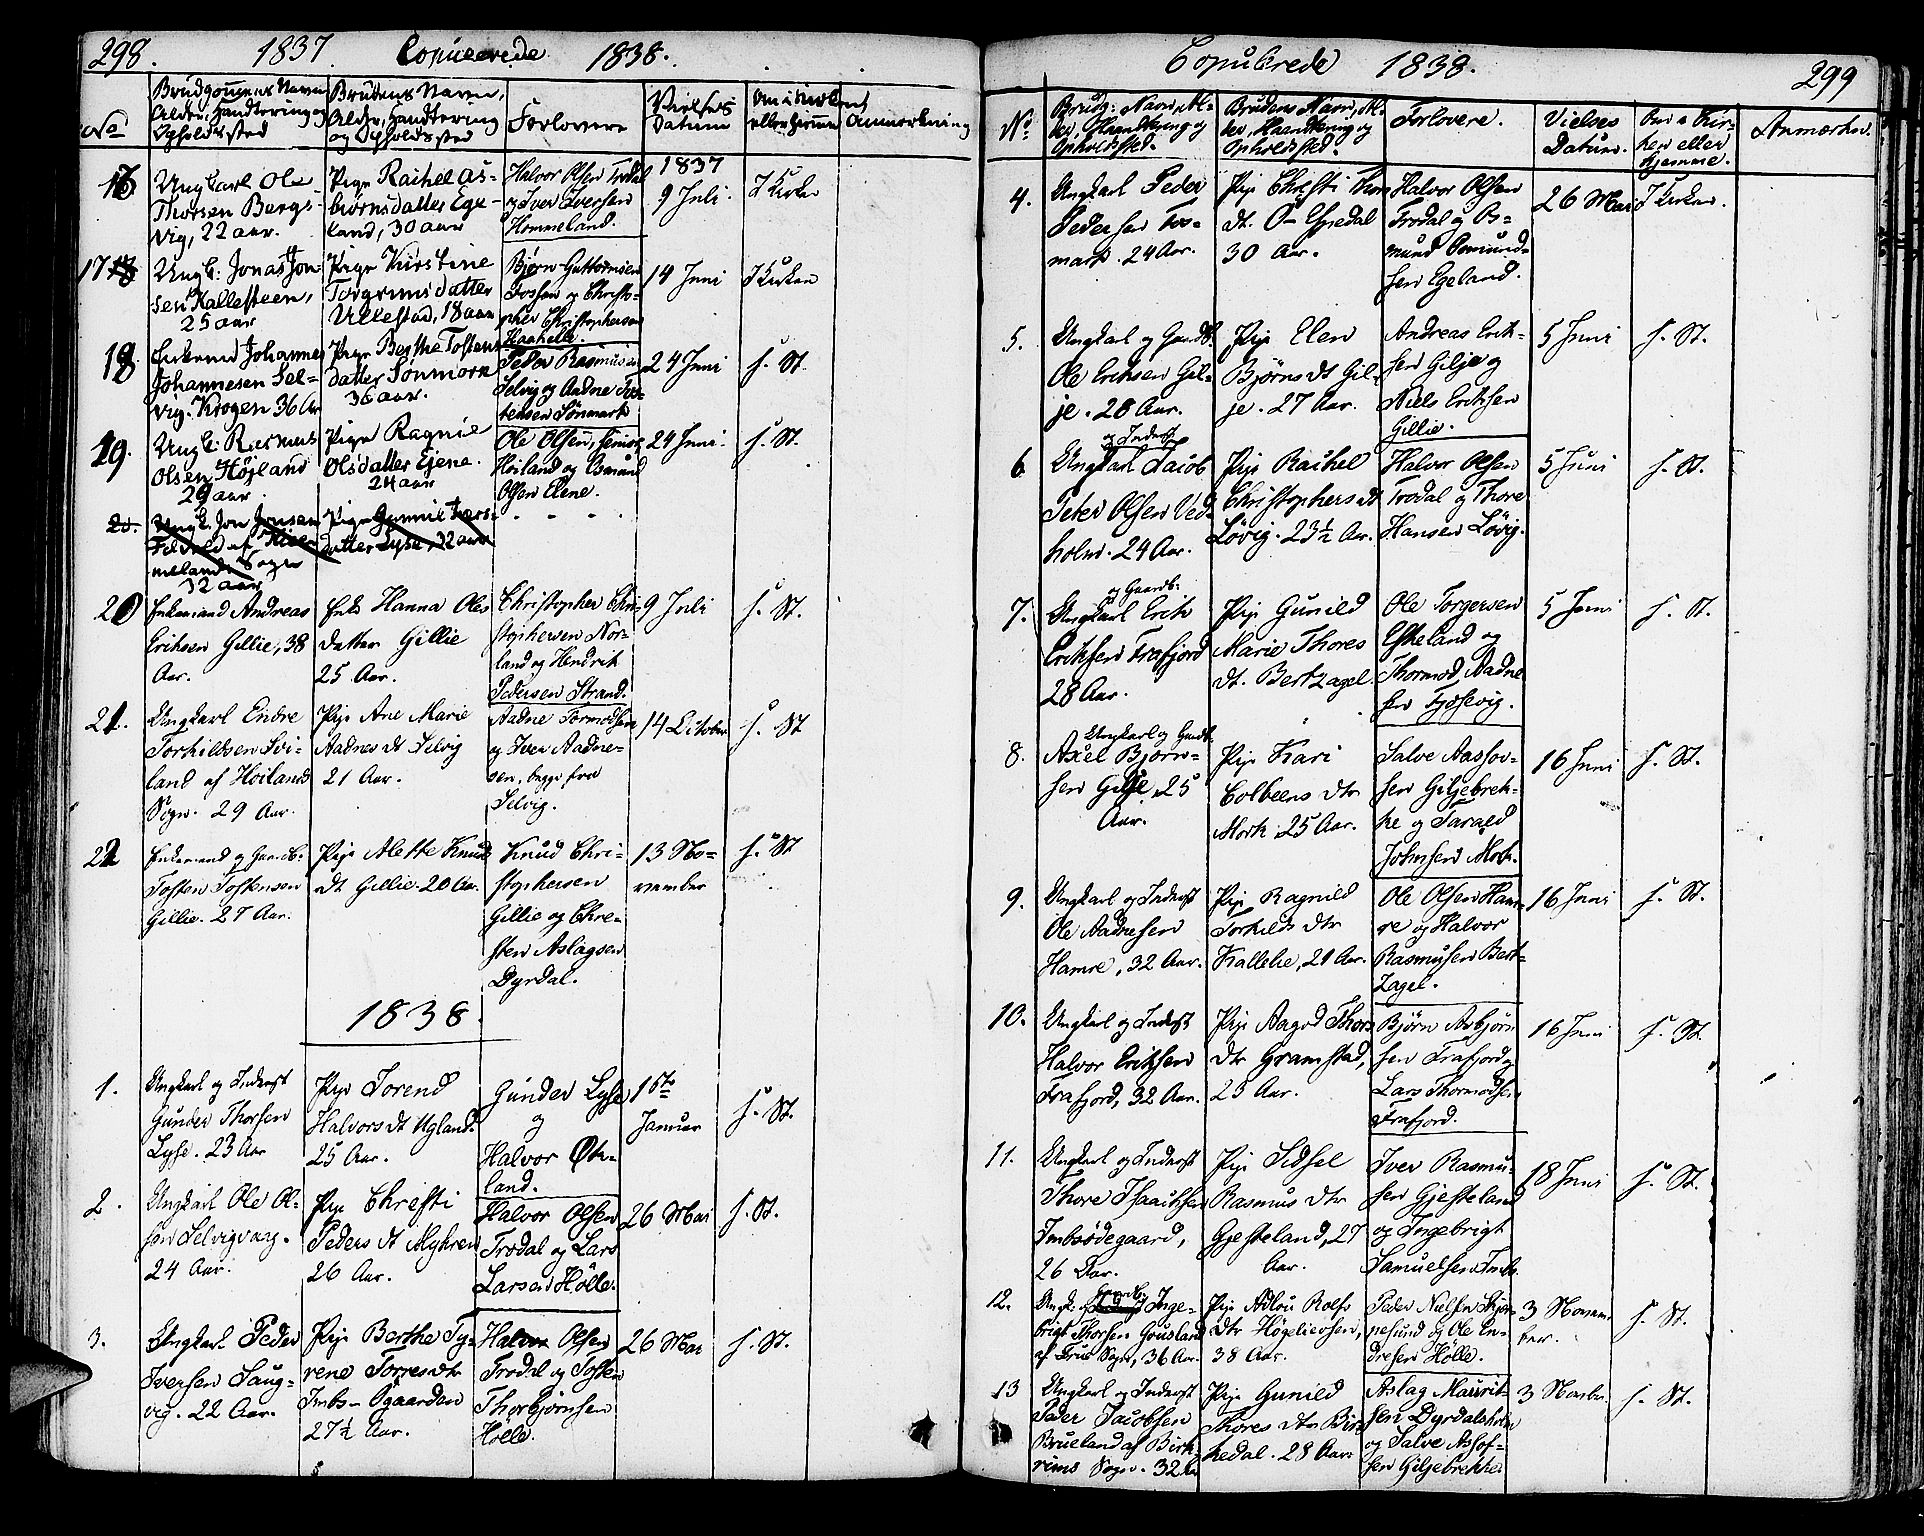 298. 1837. Copulerede 1838.
No
Brudgommens Navn
Alder, Handtering og
Opholdssted
Brudens Navn,
Alder, Handtering
og Opholdssted
Forlovere
Vielses
Datum
Om i Kirken
eller hjemme
Anmærkning
1837
16
Ungkarl Ole
Thorsen Bergs-
vig, 22 aar.
Pige Rachel As-
biørnsdatter Ege-
land, 30 aar
Halvor Olsen Trodal
og Iver Iversen
Hommeland.
9 Juli.
I Kirken
17
Ungk: Jonas Jon-
sen Kallesteen,
25 aar
Pige Kirstine
Torgrimsdatter
Ullestad, 18 aar
Bjørn Guttormsen
Fossan og Christo-
pher Christophersen
14 Juni
I Kirken
18
Enkemd Johannes
Johannesen Sel-
vig. Krogen 36 Aar
Pige Berthe Tostens
datter Sønmork
36 aar.
Peder Rasmusen
Selvig og Aadne Tos-
tensen Sønmork
24 Juni
s. St.
19.
Ungk: Rasmus
Olsen Høiland
29 aar
Pige Ragnie
Olsdatter Ejene.
24 aar
Ole Olsen, senior
Høiland og Osmund
Olsen Elene.
24 Juni.
s. St.
20.
Ungk. Jon Jonsen
32 aar
Pige Gunnie Lars-
datter Lyse, 32 aar
- - - -
20
Enkemand Andreas
Eriksen Gillie, 38
Aar.
Enke Hanna Ols
datter Gillie
25 Aar.
Christopher Chri-
stophersen Nor-
land og Hendrik
Pedersen Strand.
9 Juli
s. St.
21.
Ungkarl Endre
Torkildsen Svi-
land af Høilands
Sogn. 29 Aar.
Pige Ane Marie
Aadnes dt Selvig
21 Aar.
Aadne Tormodsen
og Iver Aadne-
sen, begge fra
Selvig.
14 October
s. St
22
Enkemand og Gaardb.
Tosten Tostensen
Gillie. 27 Aar.
Pige Alette Knuds
dt Gillie. 20 Aar.
Knud Chri-
stophersen
Gillie og Chre-
sten Aslagsen
Dyrdal.
13 No-
vember
s. St
1838.
1.
Ungkarl og Inderst
Gunder Thorsen
Lyse. 23 Aar
Pige Torend
Halvors dt Ugland.
25 Aar.
Gunder Lyse
og
Halvor Øk-
land.
1ste
Januar
s. St.
2.
Ungkarl Ole Ol-
sen Selvigvaag.
24 Aar.
Pige Chresti
Peders dt Myhren
26 Aar.
Halvor Olsen
Trodal og Lars
Larsen Hølle.
26 Mai
s. St.
3.
Ungkarl Peder
Iversen Saug-
vig. 22 Aar.
Pige Berthe Ty-
rene Torres dtr
Imbs-Øgaarden
27½ Aar.
Halvor Olsen
Trodal og Tosten
Thorbjørnsen
Hølle.
26 Mai
s. St.
Copulerede 1838. 299
No.
Brudg: Navn, Al-
der, Haandtering og
Opholdssted.
Brudens Navn, Al-
der, Haandtering og
Opholdssted.
Forlovere.
Vielses
Datum.
Om i Kir-
ken eller
hjemme.
Anmærkn.
4.
Ungkarl Peder
Pedersen Fos-
mark. 24 Aar.
Pige Chresti
dt. Espedal
30 Aar.
Halvor Olsen
Trodal og Os-
mund Osmund-
sen Egeland.
26 Mai
I Kirken.
5.
Ungkarl og Gaardb.
Ole Eriksen Gil-
je. 28 Aar.
Pige Elen
Bjørns dt Gil-
je. 27 Aar.
Andreas Erik-
sen Gilje og
Niels Eriksen
Gillie.
5 Juni
s. St.
6
og Inderst
Ungkarl Jacob
Peter Olsen Ved-
holm. 24 Aar.
Pige Rachel
Christophers dt
Løvig. 23½ Aar.
Halvor Olsen
Trodal og Thore
Hansen Løvig.
5 Juni
s. St.
7.
og Gaardb.
Ungkarl Erik
Eriksen Frafjord
28 Aar.
Pige Gunild
Marie Thores
dt. Bertzagel.
Ole Torgersen
Eskeland og
Thormod Aadne
sen Fjosevig.
5 Juni
s. St.
8.
Ungkarl og Gaardb.
Axel Bjørn-
sen Gilje, 25
Aar.
Pige Kari
Colbeens dtr
Mork. 25 Aar.
Salve Aassov-
sen Giljebrek-
ke og Tarald
Johnsen Mork.
16 Juni
s. St.
9.
Ungkarl og Inderst
Ole Aadnesen
Hamre, 32 Aar.
Pige Ragnild
Torkilds dtr
Kallelie, 21 Aar.
Ole Olsen Ham-
re og Halvor
Rasmusen Bert-
zagel.
16 Juni
s. St.
10.
Ungkarl og Inderst
Halvor Eriksen
Frafjord, 32 Aar.
Pige Aagod Thors
dtr Gramstad,
23 Aar.
Bjørn Asbjørn
sen Frafjord og
Lars Thormodsen
Frafjord.
16 Juni
s. St.
11.
Ungkarl og Inderst
Thore Isaachsen
Imbsødegaard,
26 Aar.
Pige Sidsel
Rasmus dtr
Gjesteland, 27
Aar.
Iver Rasmu-
sen Gjesteland
og Ingebrigt
Samuelsen Imbs.
18 Juni
s. St.
12.
Gaardb.
Ungk. og Inge-
brigt Thorsen Gousland
af Frue Sogn, 36 Aar.
Pige Adlou Rolfs
dtr Høgelieosen,
38 Aar.
Peder Nielsen Skjør-
pesund og Ole En-
dresen Hølle.
3 Novem-
ber.
s. St.
13
Ungkarl og Inderst
Peder Jacobsen
Brueland af Birk-
rems Sogn. 32 Aar
Pige Gunild
Thores dtr Bir-
kedal. 28 Aar
Aslag Maurit-
sen Dyrdalsholm
og Salve Assof-
sen Giljebrekke.
3 Novbr.
s. St.